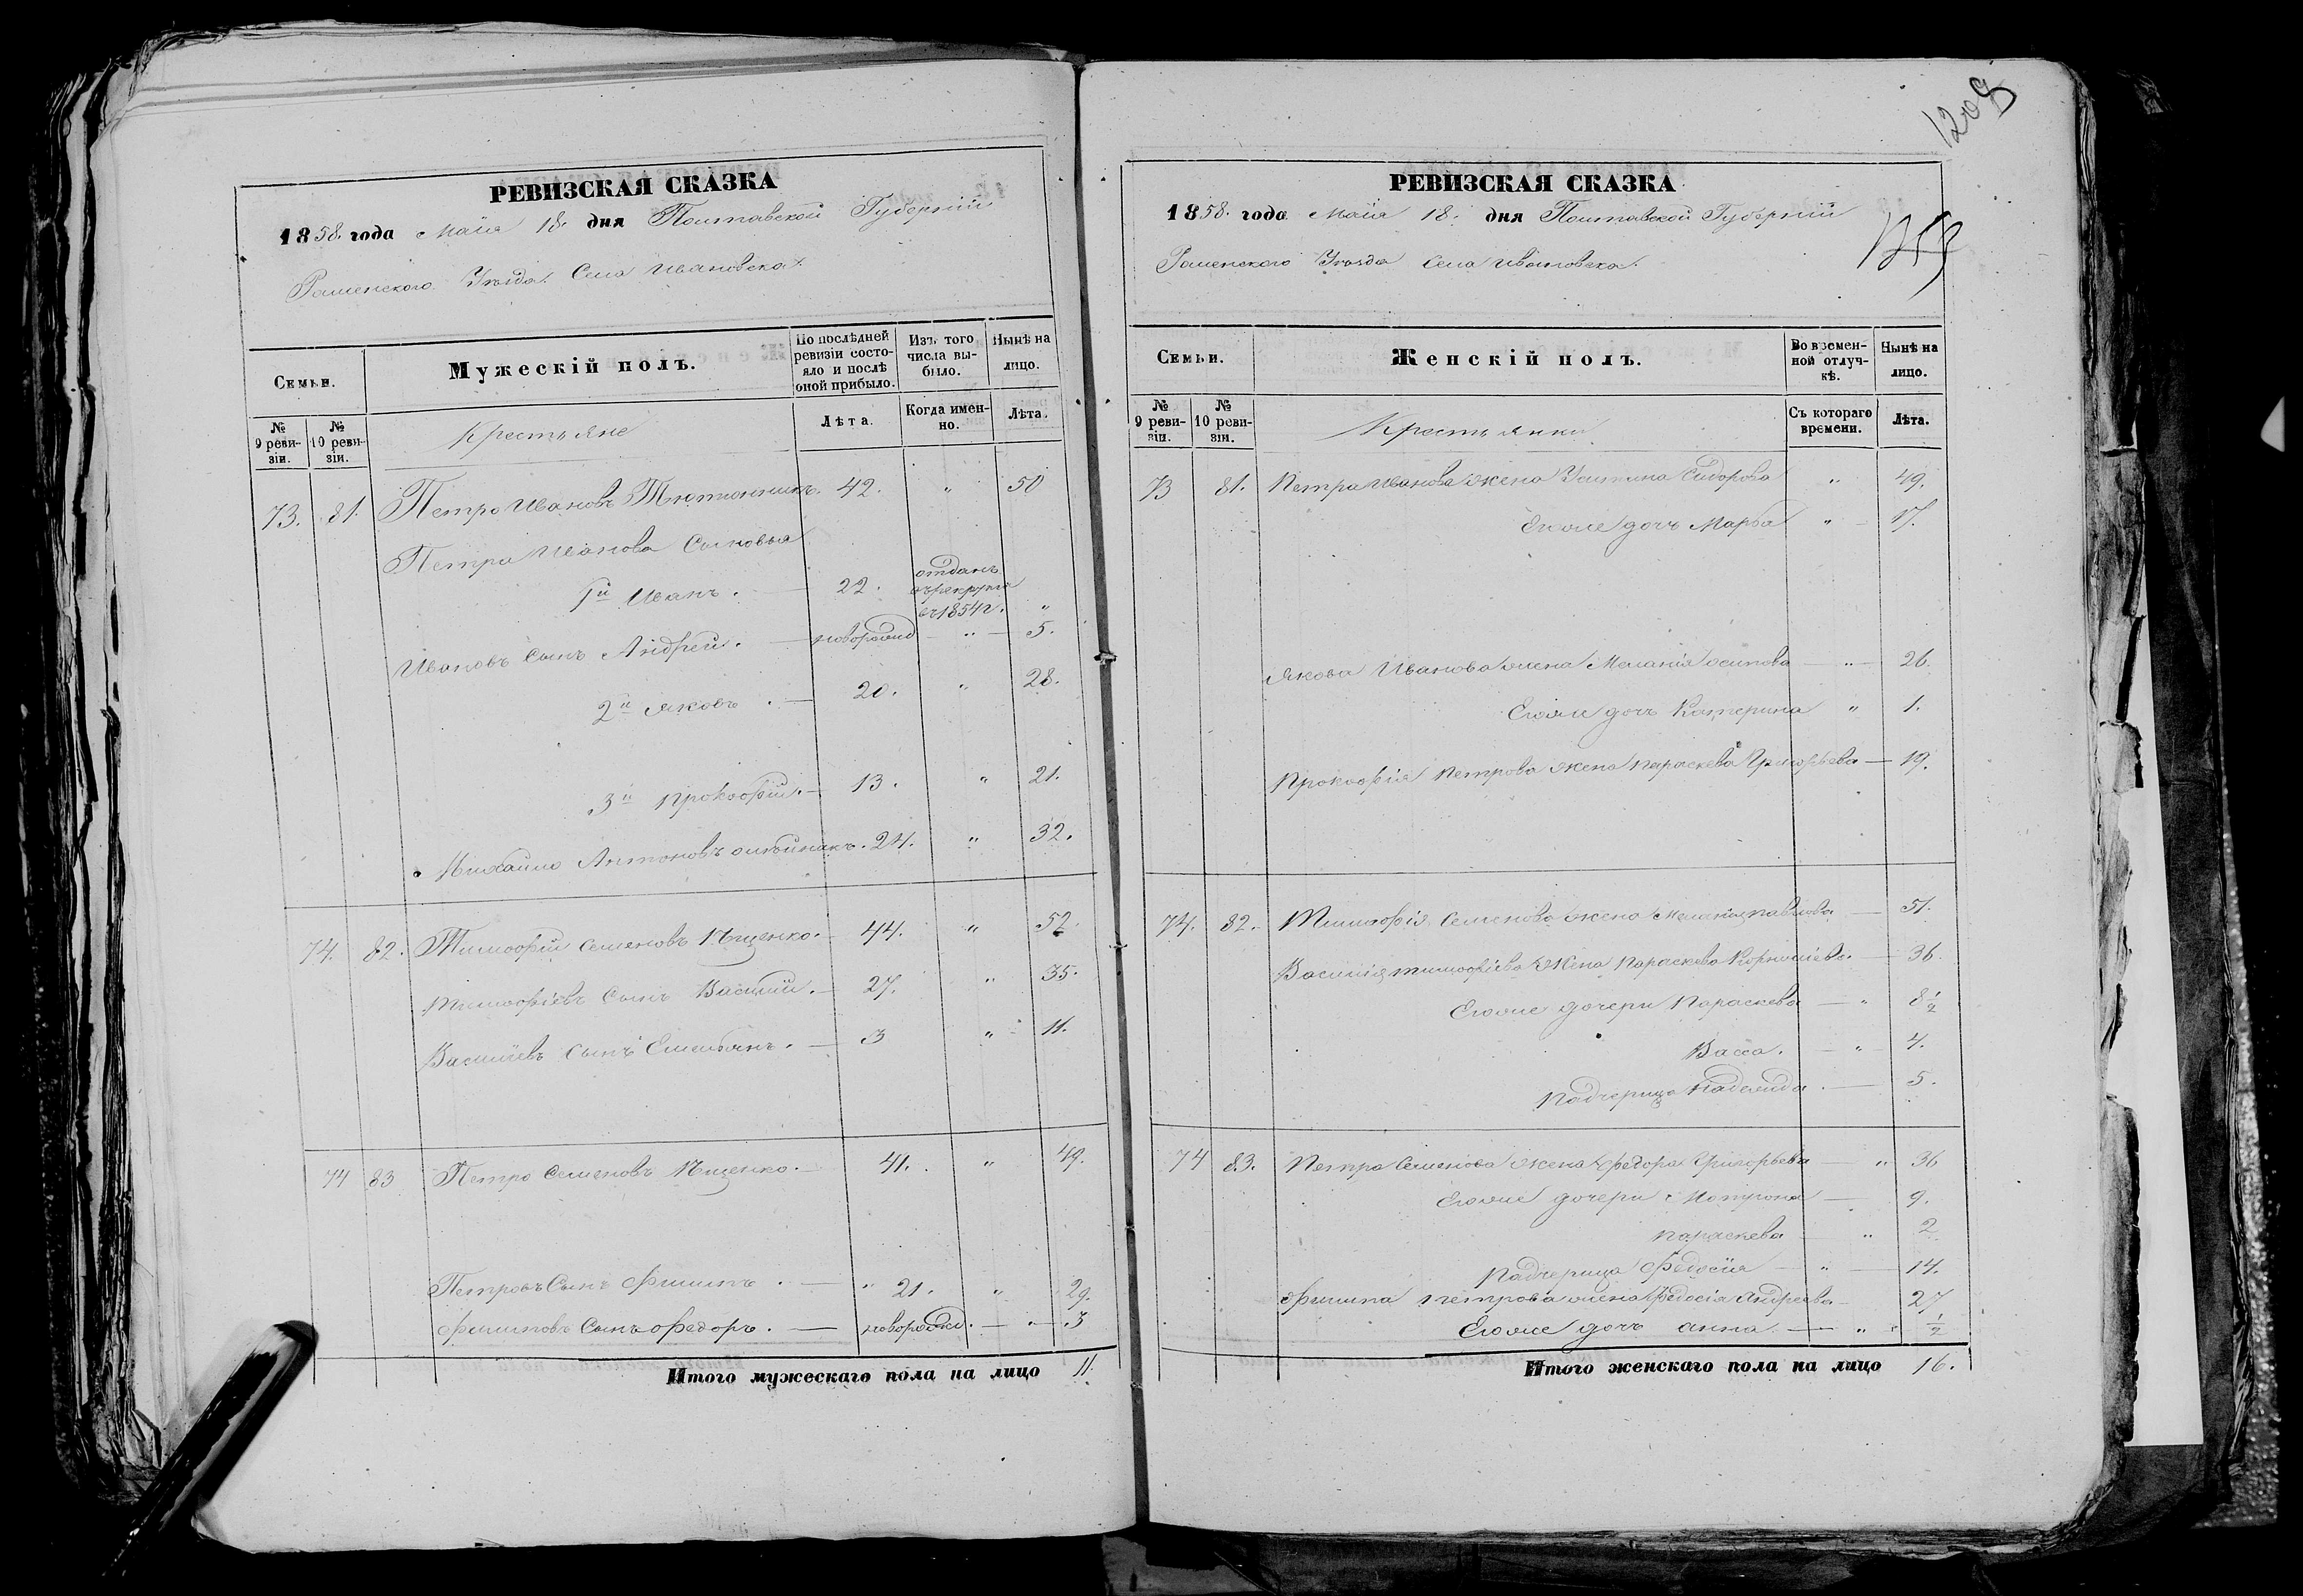 РЕВИЗСКАЯ СКАЗКА
1858. года Маія 18. дня Полтавской Губерніи
Роменского Уѣзда. Села Ивановска.
Семьи.
Мужескій полъ.
По послѣдней ревизіи состояло и послѣ оной прибыло.
Изъ того числа выбыло.
Нынѣ на лицо.
№ 9 ревизіи.
№ 10 ревизіи.
Крестьяне
Лѣта.
Когда именно.
Лѣта.
73. 81. Петро Ивановъ Тютюнникъ. 42. " 50
Петра Иванова Сыновья
1й Иванъ. 22. отданъ въ рекруты въ 1854 г. "
Ивановъ Сынъ Андрей. — новорожд — " — 5.
2й Яковъ. — 20. " 28.
3й Прокофій. — 13. " 21.
Михайло Антоновъ 24. " 32.
74. 82. Тимофій Семеновъ Ищенко. 44. " 52.
Тимофіевъ Сынъ Василій. — 27. " 35.
Василіевъ Сынъ Емельянъ. — 3 " 11.
74 83 Петро Семеновъ Ищенко. — 41. " 49.
Петровъ Сынъ Филипъ. — " 21. " 29.
Филиповъ Сынъ Федоръ. — новорожд. — " — 3
Итого мужескаго пола на лицо 11.
1209
РЕВИЗСКАЯ СКАЗКА
1858. года Маія 18. дня Полтавской Губерніи
Роменского Уѣзда Села Ивановска.
Семьи.
Женскій полъ.
Во временной отлучкѣ.
Нынѣ на лицо.
№ 9 ревизіи.
№ 10 ревизіи.
Крестьянки
Съ котораго времени.
Лѣта.
73 81. Петра Иванова жена Устина Сидорова " 49.
Егоже дочь Марфа " 17.
Якова Иванова жена Меланія Осипова — " — 26.
Егоже дочь Катерина " 1.
Прокофія Петрова жена Параскева Григорьева — 19.
74. 82. Тимофія Семенова жена Меланія Павлова — 51.
Василія Тимофіева Жена Параскева Корніліева. — 36.
Егоже дочери Параскева — " 8 1/2
Васса. — " 4.
Падчерица Надежда. — 5.
74 83. Петра Семенова жена Федора Григорьева — " 36
Егоже дочери Мотрона — 9.
Параскева — " 2
Падчерица Федосія — " — 14.
Филипа Петрова жена Федосія Андреева — 27
Егоже дочь Анна. — " 1/2
Итого женскаго пола на лицо 16.